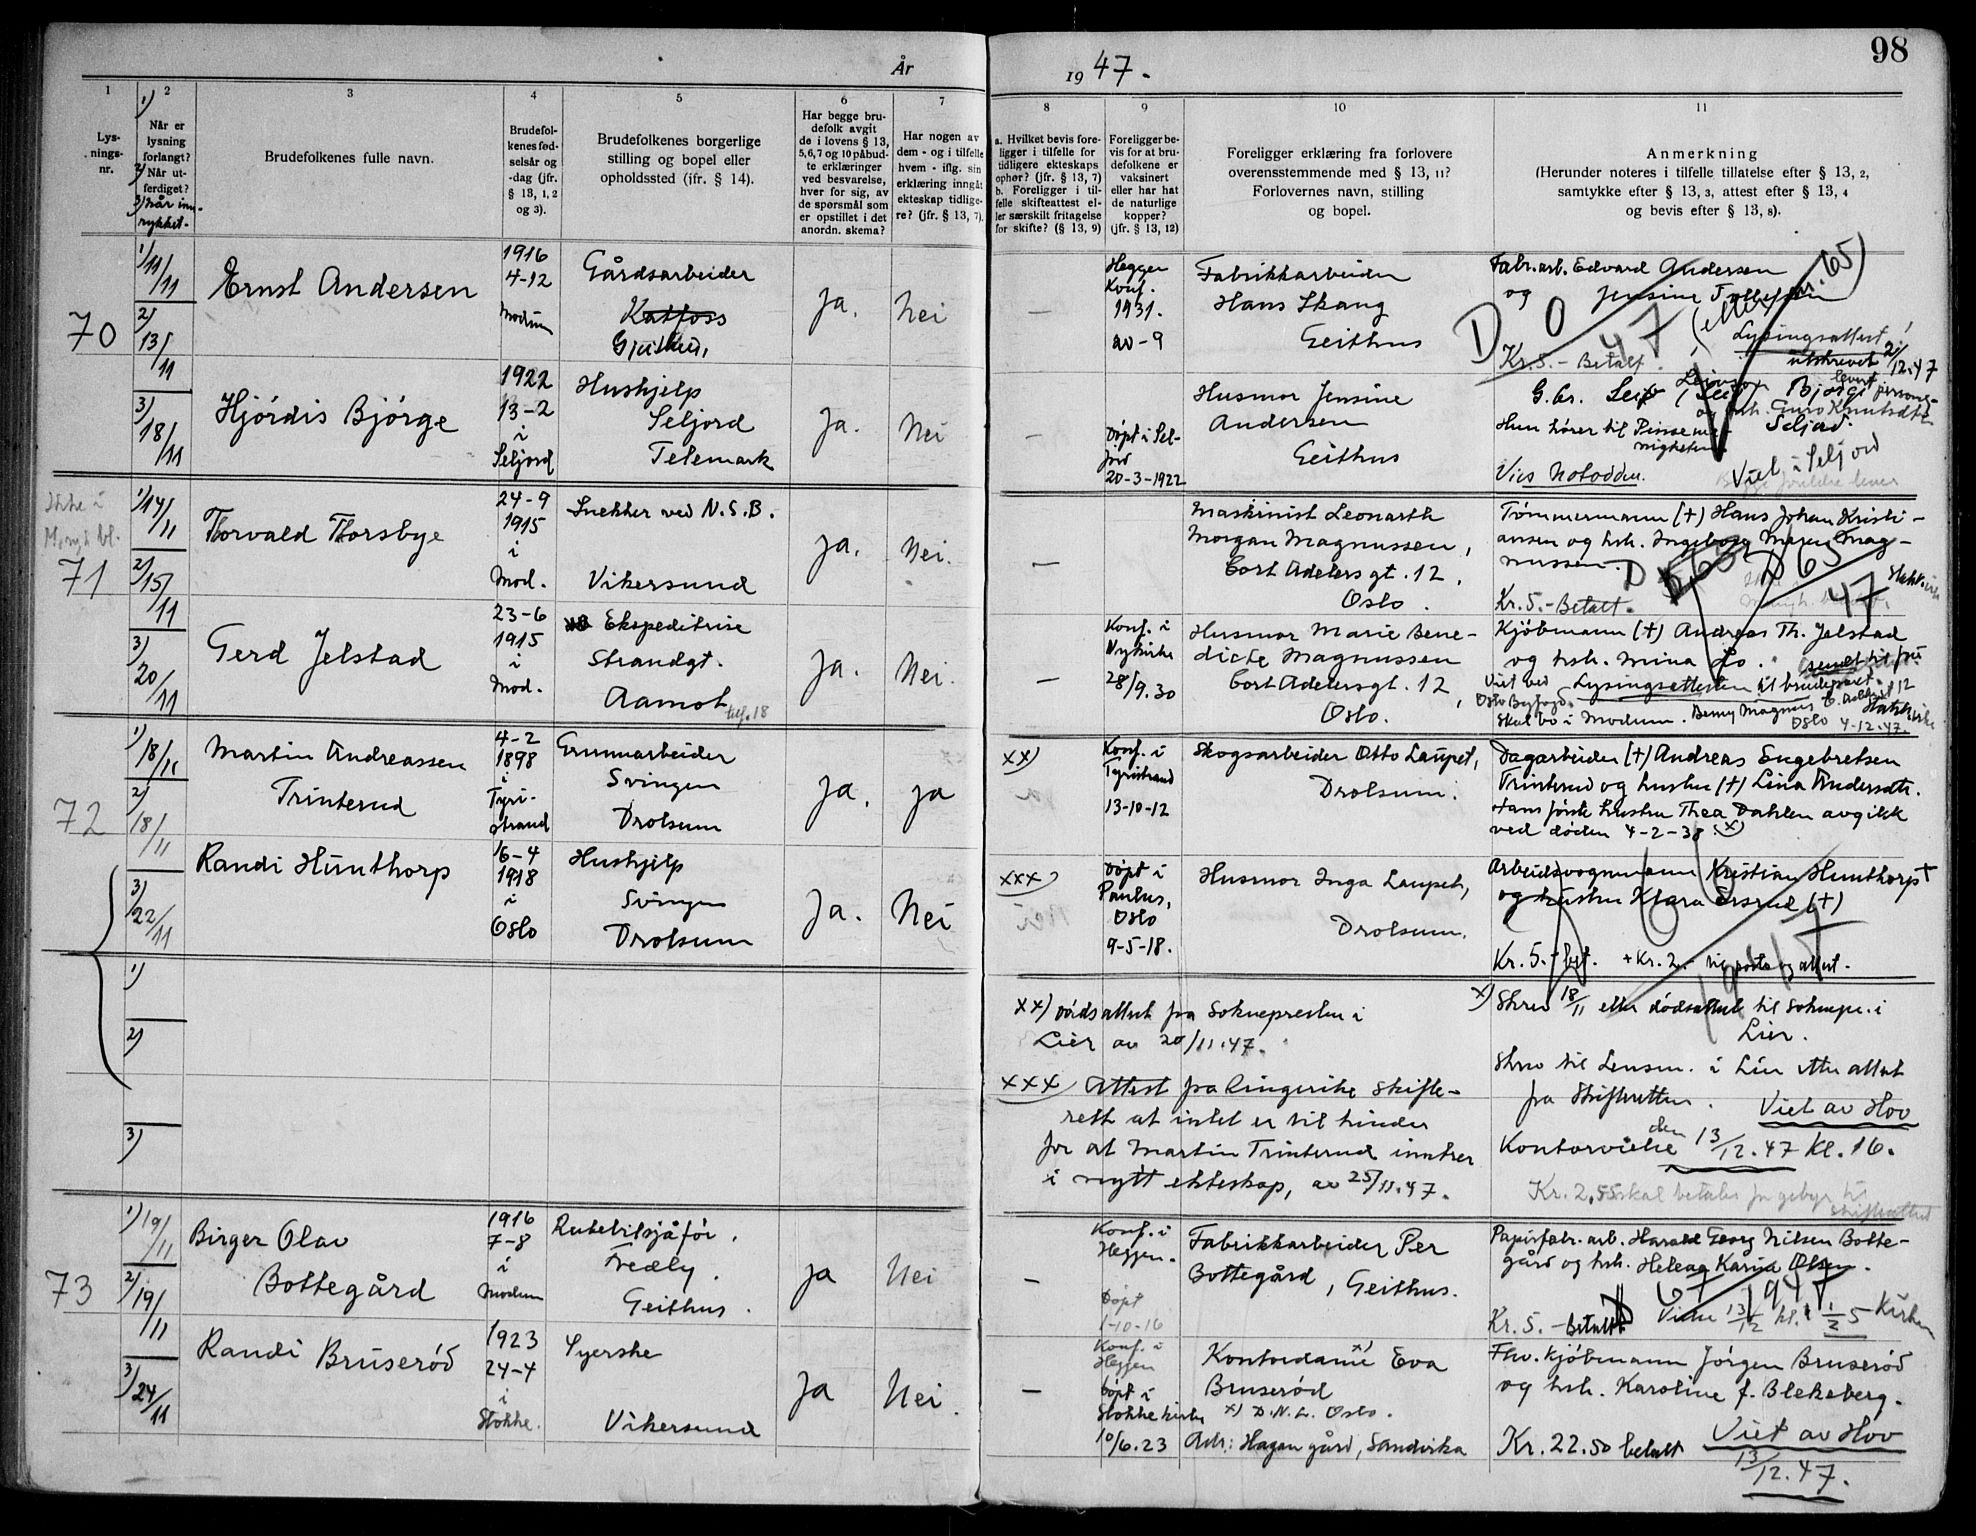 98
År
1947.
1
2
3
4
5
6
7
8
9
10
11
Lys-
nings-
nr.
1)
Når er
lysning
forlangt?
2)
Når ut-
ferdiget?
3) Når inn-
rykket.
Brudefolkenes fulle navn.
Brudefol-
kenes fød-
selsår og
-dag (jfr.
§ 13, 1, 2
og 3).
Brudefolkenes borgerlige
stilling og bopel eller
opholdssted (ifr. § 14).
Har begge bru-
defolk avgit
de i lovens § 13,
5,6,7 og 10 påbud-
te erklæringer
ved besvarelse,
hver for sig, av
de spørsmål som
er opstillet i det
anordn. skema?
Har nogen av
dem - og i tilfelle
hvem - iflg. sin
erklæring inngåt
ekteskap tidlige-
re? (jfr. § 13, 7).
a. Hvilket bevis fore-
ligger i tilfelle for
tidligere ekteskaps
ophør? (jfr. § 13, 7)
b. Foreligger i til-
felle skifteattest el-
ler særskilt fritagelse
for skifte? (§ 13, 9)
Foreligger be-
vis for at bru-
defolkene er
vaksinert
eller har hat
de naturlige
kopper?
(jfr. § 13, 12)
Foreligger erklæring fra forlovere
overensstemmende med § 13, 11?
Forlovernes navn, stilling
og bopel.
Anmerkning
(Herunder noteres i tilfelle tillatelse efter § 13, 2,
samtykke efter § 13, 3, attest efter § 13, 4
og bevis efter § 13, 8).
70
1) 11/11
2) 13/11
3) 18/11
Ernst Andersen
1916
4-12
Modum
Gårdsarbeider
Katfoss
Ja.
Nei
—
Heggen
Konf.
1931.
av - 9
Fabrikkarbeider
Hans Skang
Geithus
Fabr.arb. Edvard Andersen
og Jensine
D 0 47
Kr. 5. - Betalt.
Lysingsattest
utskrevet 2/12.47
Hjördis Björge
1922
13-2
i
Seljord
Hushjelp
Seljord
Telemark
Ja.
Nei
—
Döpt i Sel-
jord
20-3-1922
Husmor Jensine
Andersen
Geithus
G.br. Leif
og hsh. Guro Knutsdtr.
Seljord.
Hun hører til Pinseme-
nigheten.
Vies Notodden.
Viet i Seljord
Ikke i
71
1) 14/11
2) 15/11
3) 20/11
Thorvald Thorsbye
24-9
1915
i
Mod.
Snekker ved N.S.B.
Vikersund
Ja.
Nei.
—
Maskinist Leonarth
Morgan Magnussen,
Cort Adelersgt. 12,
Oslo.
Tömmermann (+) Hans Johan Kristi-
ansen og hsh. Ingeborg Marie Mag-
nussen.
D 65 47
Kr. 5. - Betalt.
Gerd Jelstad
23-6
1915
i
Mod.
Ekspeditrise
Strandgt.
Aamot
tlf. 18
Ja.
Nei.
—
Konf. i
Nykirke
28/9.30
Husmor Marie Bene-
dicte Magnussen
Cort Adelersgt. 12,
Oslo.
Kjöbmann (+) Andreas Th. Jelstad
og hsh. Mina Lo.
Viet ved Lysingsattesten til brudeparet.
Oslo Byfogd.
Skal bo i Modum.
Oslo 4-12.47.
72
1) 18/11
2) 18/11
3) 22/11
Martin Andreassen
Trinterud
4-2
1898
i
Tyri-
strand
Grunnarbeider
Svingen
Drolsum
Ja.
ja
xx)
Konf. i
Tyristrand
13-10-12
Skogsarbeider Otto Laupet,
Drolsum.
Dagarbeider (+) Andreas Engebretsen
Trinterud og hustru (+) Lina Andersdtr.
Hans förste hustru Thea Dahlen avgikk
ved döden 4-2-38 x)
Randi Hunthorp
16-4
1918
i
Oslo
Hushjelp
Svingen
Drolsum
Ja.
Nei
xxx)
Döpt i
Paulus,
Oslo
9-5-18.
Husmor Inga Laupet,
Drolsum.
Arbeidsvognmann Kristian Hunthorp +
og hustru Klara Ersrud (+)
Kr. 5. - bet. + Kr. 2. - til porto og attest.
1)
2)
3)
xx) Dödsattest fra Soknepresten i
Lier av 20/11.47.
xxx) Attest fra Ringerike Skifte-
rett at intet er til hinder
for at Martin Trinterud inntrer
i nytt ekteskap, av 25/11.47.
x) Skrev 18/11 etter dödsattest til Soknepr. i
Lier.
Skrev til Lensm. i Lier etter attest
fra Skifteretten.
Viet av Hov
Kontorvielse den 13/12.47 Kl. 16.
Kr. 2,55 skal betales for gebyr til
skifteattest
73
1) 19/11
2) 19/11
3) 24/11
Birger Olav
Bottegård
1916
7-8
i
Modum
Rutebilsjåför.
Fredly.
Geithus.
ja
Nei
—
Konf. i
Heggen.
Döpt
1-10-16
Fabrikkarbeider Per
Bottegård, Geithus.
Papirfabr.arb. Harald Georg Nilsen Botte-
gård og hsh. Helene Karine Olsen.
D 67 1947
Kr. 5. - Betalt
Vielse 13/12 kl. 1/2 5 Kirken
Randi Bruseröd
1923
24-4
i
Stokke.
Syerske
Vikersund
ja
Nei.
—
Konf. i
Heggen
Döpt i
Stokke kirke
10/6.23
Kontordame x) Eva
Bruseröd
x) D.N.L. Oslo.
Adr: Hagan gård, Sandvika
Fhv. Kjöbmann Jörgen Bruseröd
og hsh. Karoline f. Blekeberg.
Kr. 22.50 betalt
Viet av Hov
13/12.47.